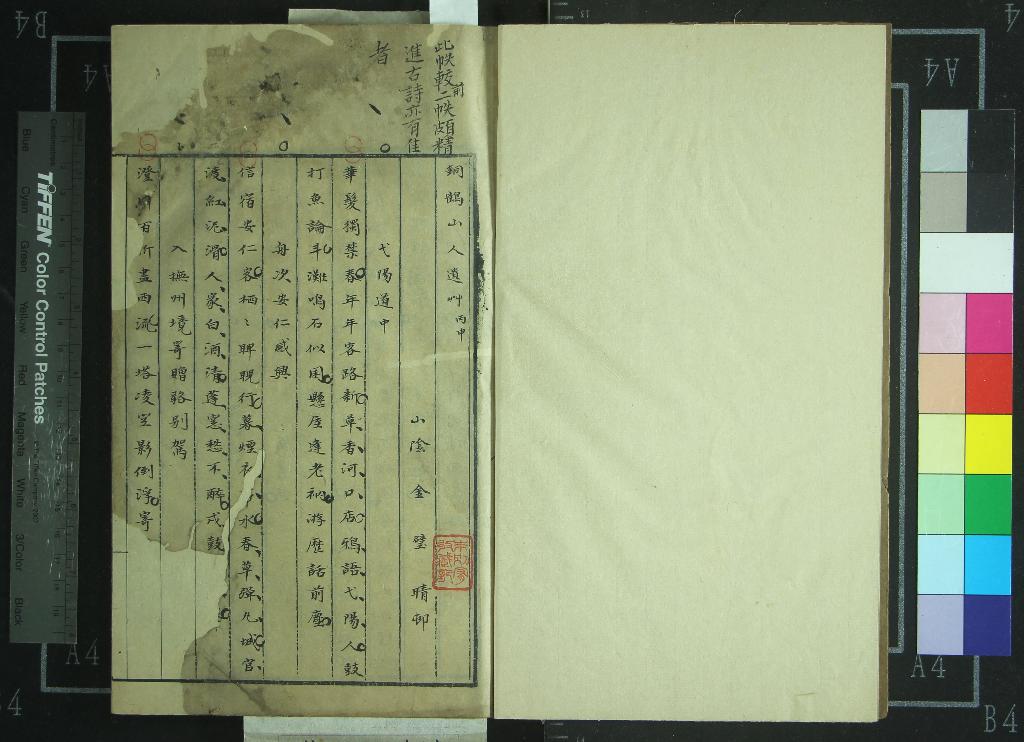 此帙較前二帙頗精
進古詩亦有佳
者
銅鶴山人遺艸丙申
山陰金璧晴邨
弋陽道中
華髮獨禁春年年客路新草香河口店鴉語弋陽人鼓
打魚論斗灘鳴石似囷懸厓逢老衲游歷話前塵
舟次安仁感興
信宿安仁客栖〻睥睨行暮煙 水春草彈丸城官
渡紅泥滑人家白酒清蓬窓愁不醉戍鼓
入撫州境寄贈駱別駕
澄 百折盡西流一塔凌空影倒浮寄
TIFFEN Color Control Patches
Blue Cyan Green Yellow Red Magenta White 3/Color Black
Centimetres
B4
A4
A4
A4
A4
B4